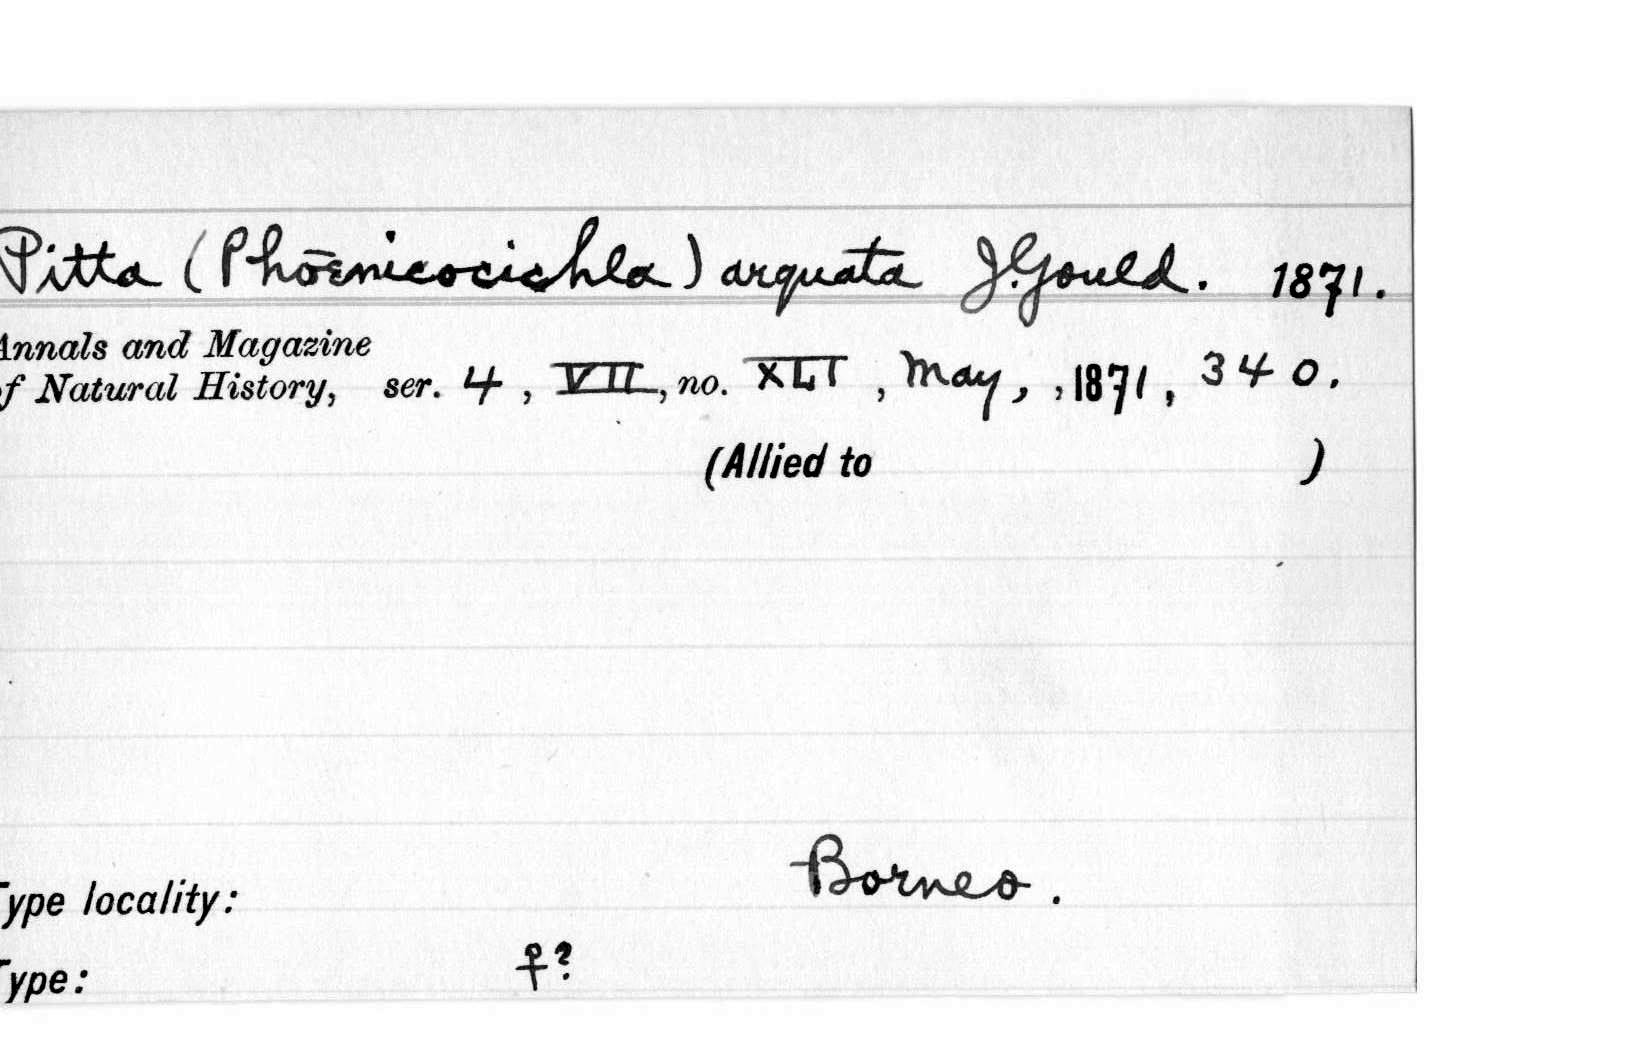 Pitta (Phœnicocichla) arquata J. Gould. 1871.
Annals and Magazine
of Natural History, ser. 4, VII, no. XLI, May, , 1871, 340.
(Allied to )
Type locality: Borneo.
Type: ♀?